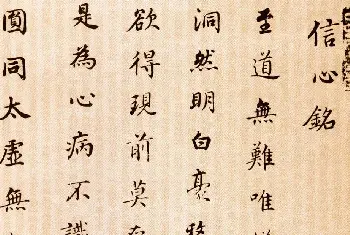 信心銘
至道無難唯
洞然明白毫
欲得現前莫
是為心病不識
圓同太虛無